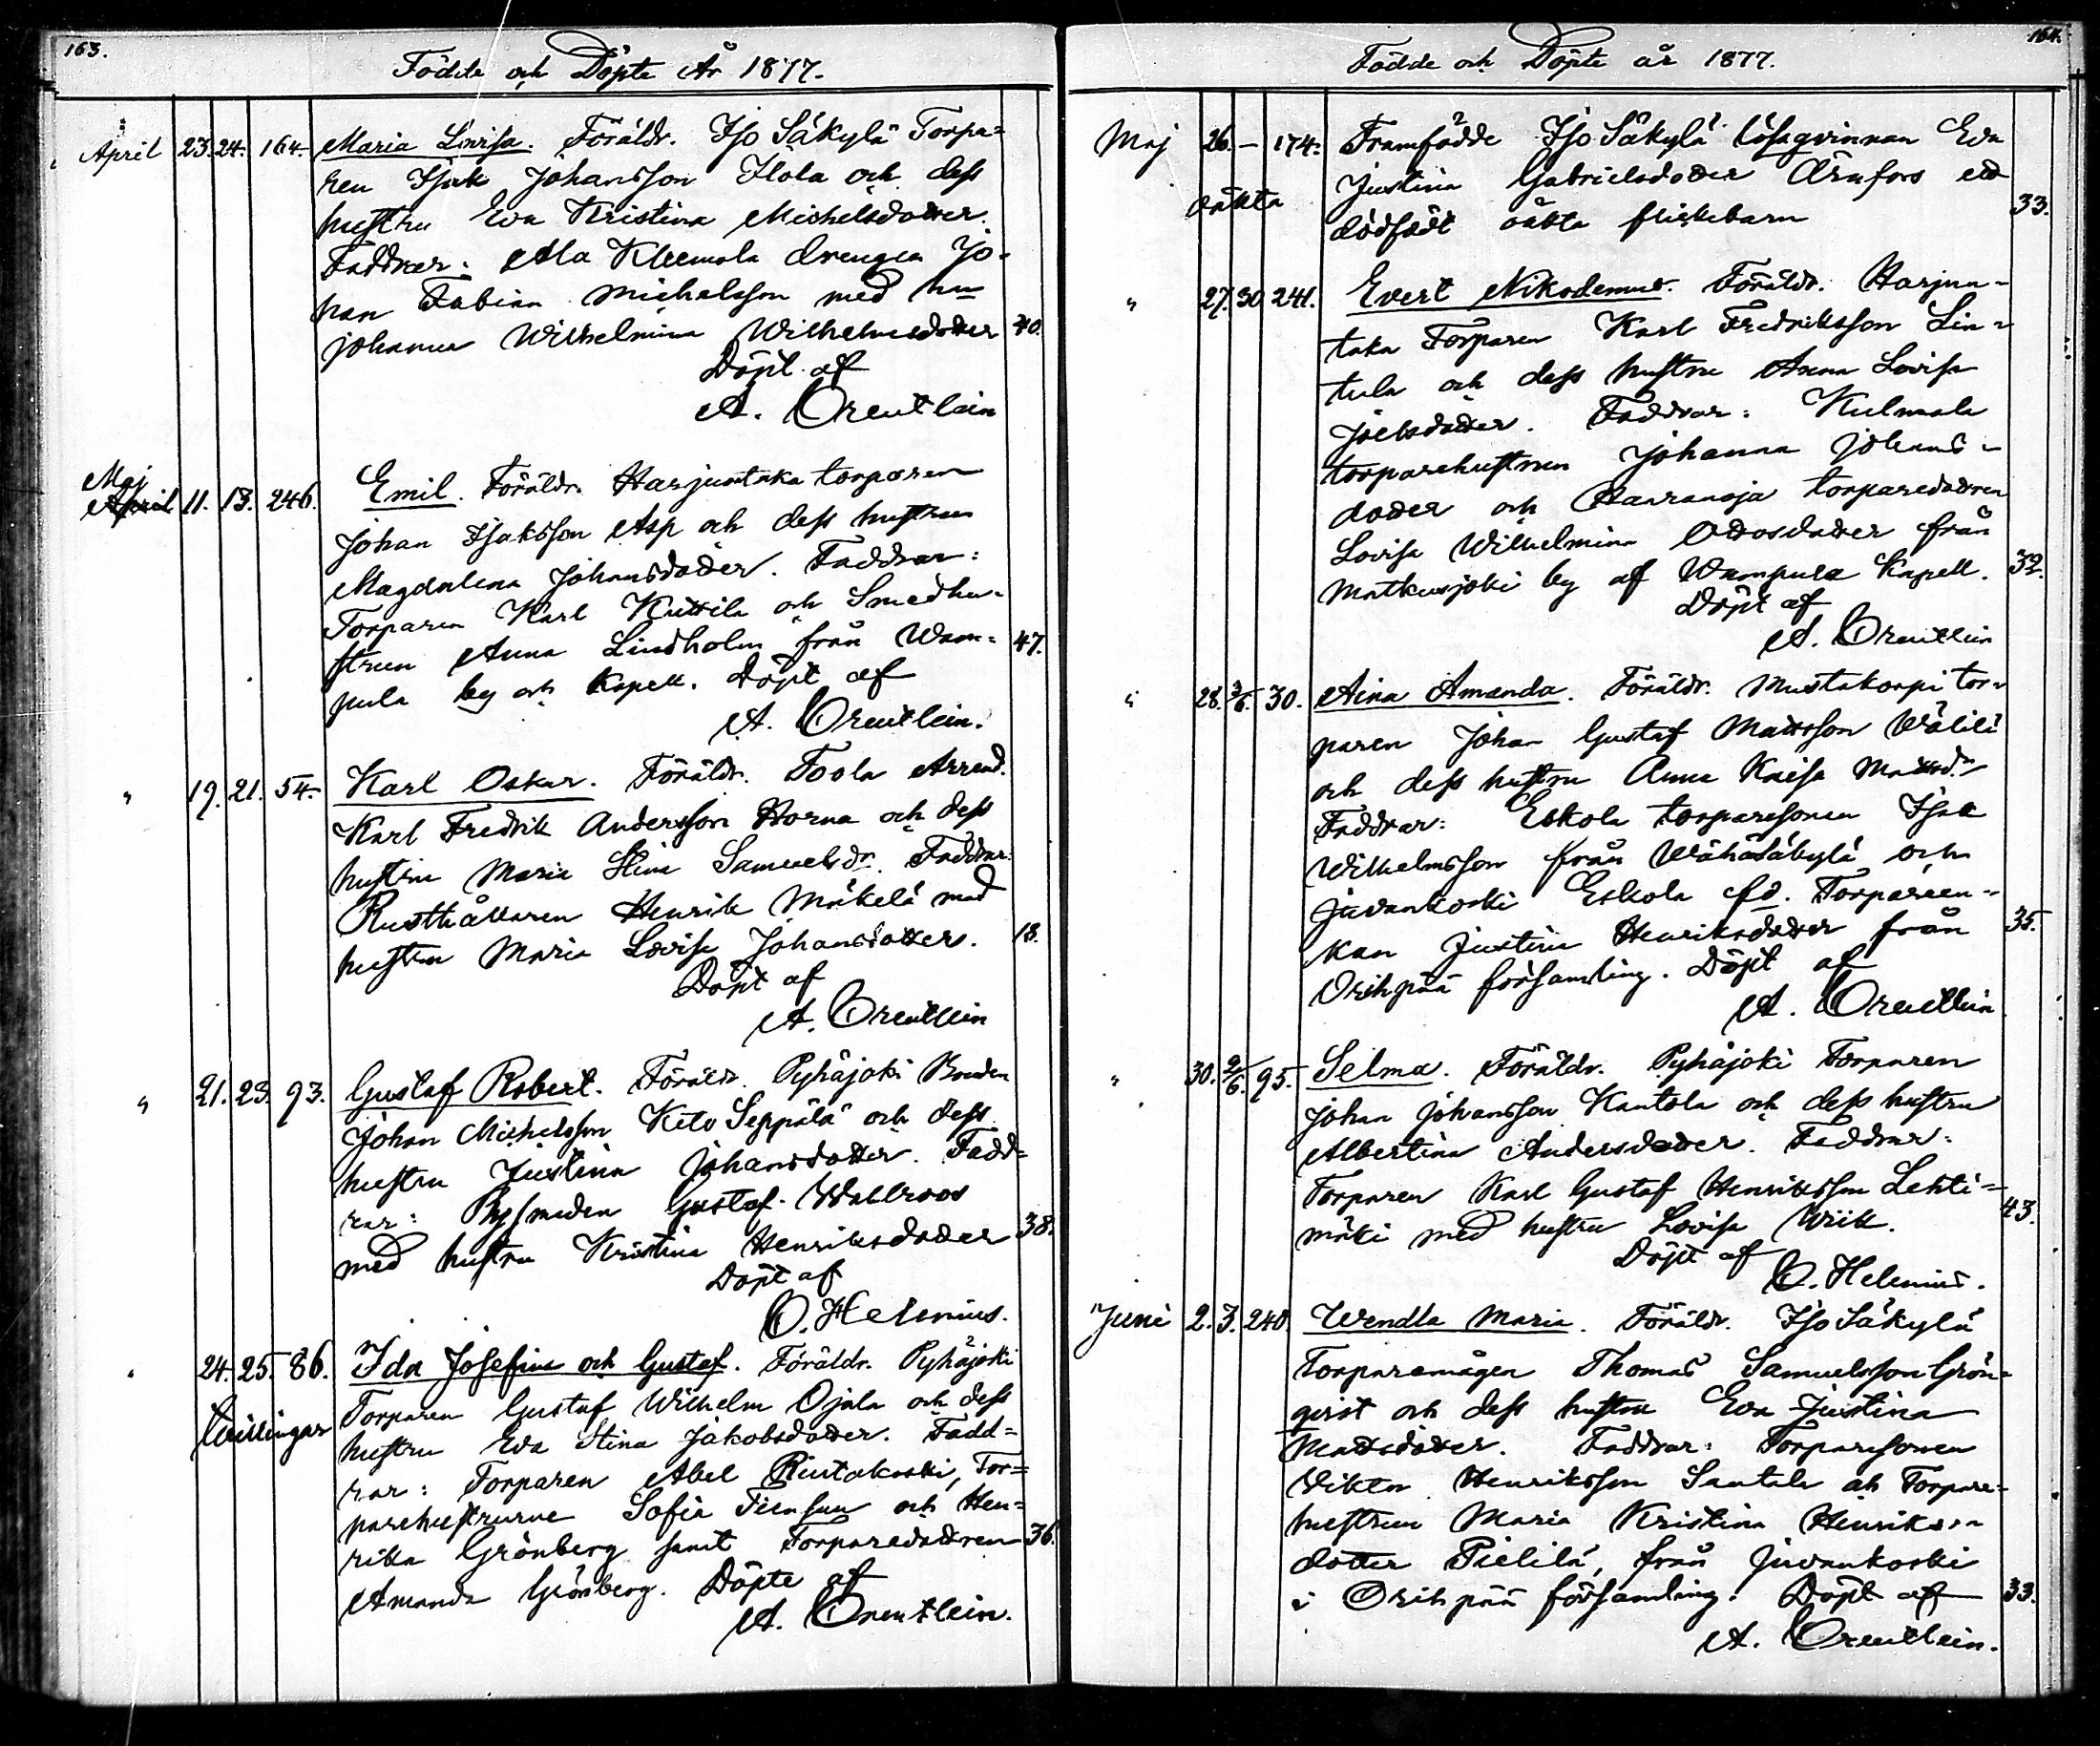 163.
Födde och Döpte År 1877.
April 23. 24. 164. Maria Lovisa. Föräldr. Iso Säkylä Torpa=
ren Isak Johansson Ilola och dess
hustru Eva Kristina Michelsdotter.
Faddrar: Ala Kleemola drengen Jo-
han Fabian Michelsson med hu
Johanna Wilhelmina Wilhelmsdotter 40.
Döpt af
A. Oreutlein
Maj
April 11. 13. 246. Emil. Föräldr. Harjuntaka torparen
Johan Isaksson Asp och dess hustru
Magdalena Johansdotter. Faddrar:
Torparen Karl Kuttila och Smedhu-
strun Anna Lindholm från Wam= 47.
pula by och Kapell. Döpt af
A. Oreutlein.
" 19. 21. 54. Karl Oskar. Föräldr. Toola Arrend.
Karl Fredrik Andersson Horna och dess
hustru Maria Stina Samuelsdr. Faddrar:
Rusthållaren Henrik Mäkelä med
hustru Maria Lovisa Johansdotter. 18.
Döpt af
A. Oreutlein
" 21. 23. 93. Gustaf Robert. Föräldr. Pyhäjoki Bonden
Johan Michelsson Keto Seppälä och dess
hustru Justina Johansdotter. Fadd=
rar: Gustaf Wahlroos
med hustru Kristina Henriksdotter 38.
Döpt af
O. Helenius.
" 24. 25. 86. Ida Josefina och Gustaf. Föräldr. Pyhäjoki
Tvillingar Torparen Gustaf Wilhelm Ojala och dess
hustru Eva Stina Jakobsdotter. Fadd=
rar: Torparen Abel Rintakoski, Tor=
parehustrurne Sofia och Hen=
rika Grönberg samt Torparedottren 36.
Amanda Grönberg. Döpte af
A. Oreutlein.
164.
Födde och Döpte år 1877.
Maj 26. – 174. Framfödde Iso Säkylä lösaqvinnan Eva
oäkta Justina Gabrielsdotter Ärnfors ett
dödfödt oäkta flickebarn 33.
" 27. 30. 241. Evert Nikodemus. Föräldr. Harjun-
taka Torparen Karl Fredriksson Lin-
tula och dess hustru Anna Lovisa
Joelsdotter. Faddrar: Kulmala
torparehustrun Johanna Johans-
dotter och Haaranoja torparedottren
Lovisa Wilhelmina Ottosdotter från
Matkusjoki by af Wampula Kapell. 32.
Döpt af
A. Oreutlein
" 28. 3/6. 30. Aina Amanda. Föräldr. Mustakorpi tor-
paren Johan Gustaf Mattsson Välilä
och dess hustru Anna Kaisa Mattsdr
Faddrar: Eskola torparesonen Isak
Wilhelmsson från Wähäsäkylä och
Juvankoski Eskola fd. Torpareen-
kan Justina Henriksdotter från 35.
Orihpää församling. Döpt af
A. Oreutlein
" 30. 2/6. 95. Selma. Föräldr. Pyhäjoki Torparen
Johan Johansson Kantola och dess hustru
Albertina Andersdotter. Faddrar:
Torparen Karl Gustaf Henriksson Lehti=
mäki med hustru Lovisa Wiik. 43.
Döpt af
O. Helenius.
Juni 2. 3. 240. Wendla Maria. Föräldr. Iso Säkylä
Torparemågen Thomas Samuelsson Grön-
qvist och dess hustru Eva Justina
Mattsdotter. Faddrar: Torparesonen
Viktor Henriksson Santala och Torpare-
hustrun Maria Kristina Henriks-
dotter Pielilä, från Juvankoski
i Orihpää församling. Döpt af 33.
A. Oreutlein.